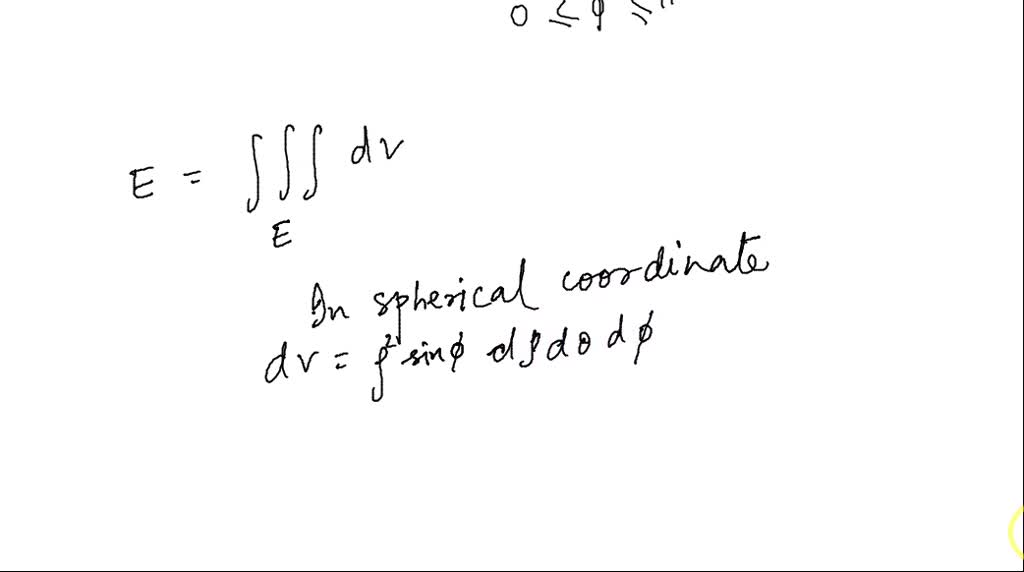 0 ≤ φ ≤ π
E = ∫∫∫ dv
E
In spherical coordinate
dv = ρ² sinφ dρ dθ dφ